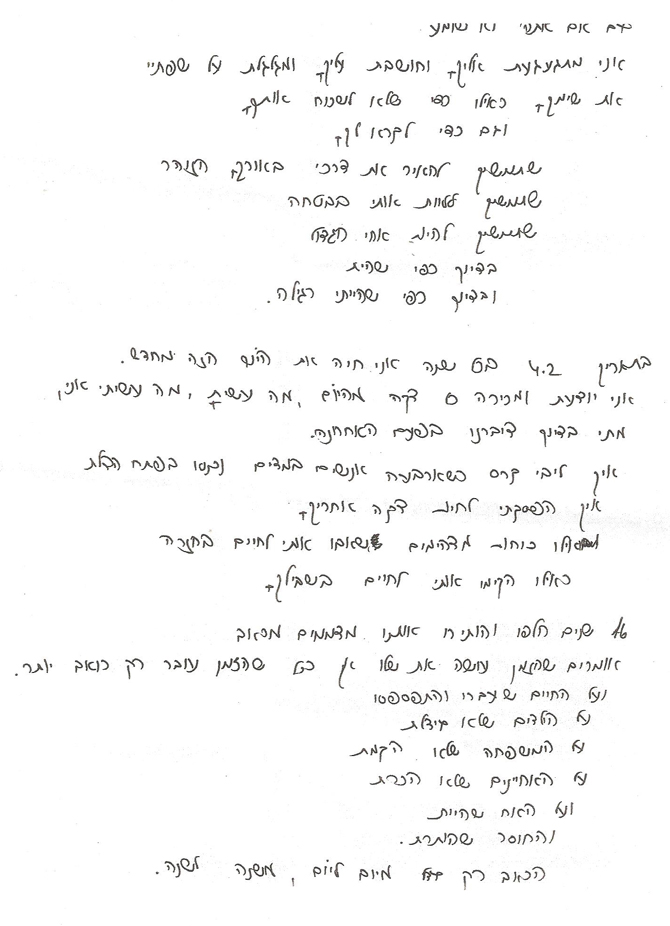 גם אם אתה לא שומע
אני מתגעגעת אליך וחושבת עליך ומגלגלת על שפתיי
את שימך כאילו כדי שלא לשכוח אותך
וגם כדי לקרוא לך
שתמשיך להאיר את דרכי באורך הזוהר
שתמשיך ללוות אותי בבטחה
שתמשיך להיות אחי הגדול
בדיוק כפי שהיית
ובדיוק כפי שהייתי רגילה.
בתאריך 4.2 בכל שנה אני חיה את היום הזה מחדש.
אני יודעת ומכירה כל דקה מהיום, מה עשית, מה עשיתי אני,
מתי בדיוק דיברנו בפעם האחרונה.
איך ליבי קרס כשארבעה אנשים במדים נכנסו בפתח הבית
איך הפסקתי לחיות דקה אחריך
כוחות מדהימים שאבו אותי לחיים בחזרה
כאילו הקימו אותי לחיים בשבילך
16 שנים חלפו והותירו אותנו מדממים מכאב
אומרים שהזמן עושה את שלו אך ככל שהזמן עובר רק כואב יותר.
ועל החיים שעברו והתפספסו
על הילדים שלא גידלת
על המשפחה שלא הקמת
על האחיינים שלא הכרת
ועל האח שהיית
והחוסר שהותרת.
הכאב רק גדל מיום ליום, משנה לשנה.